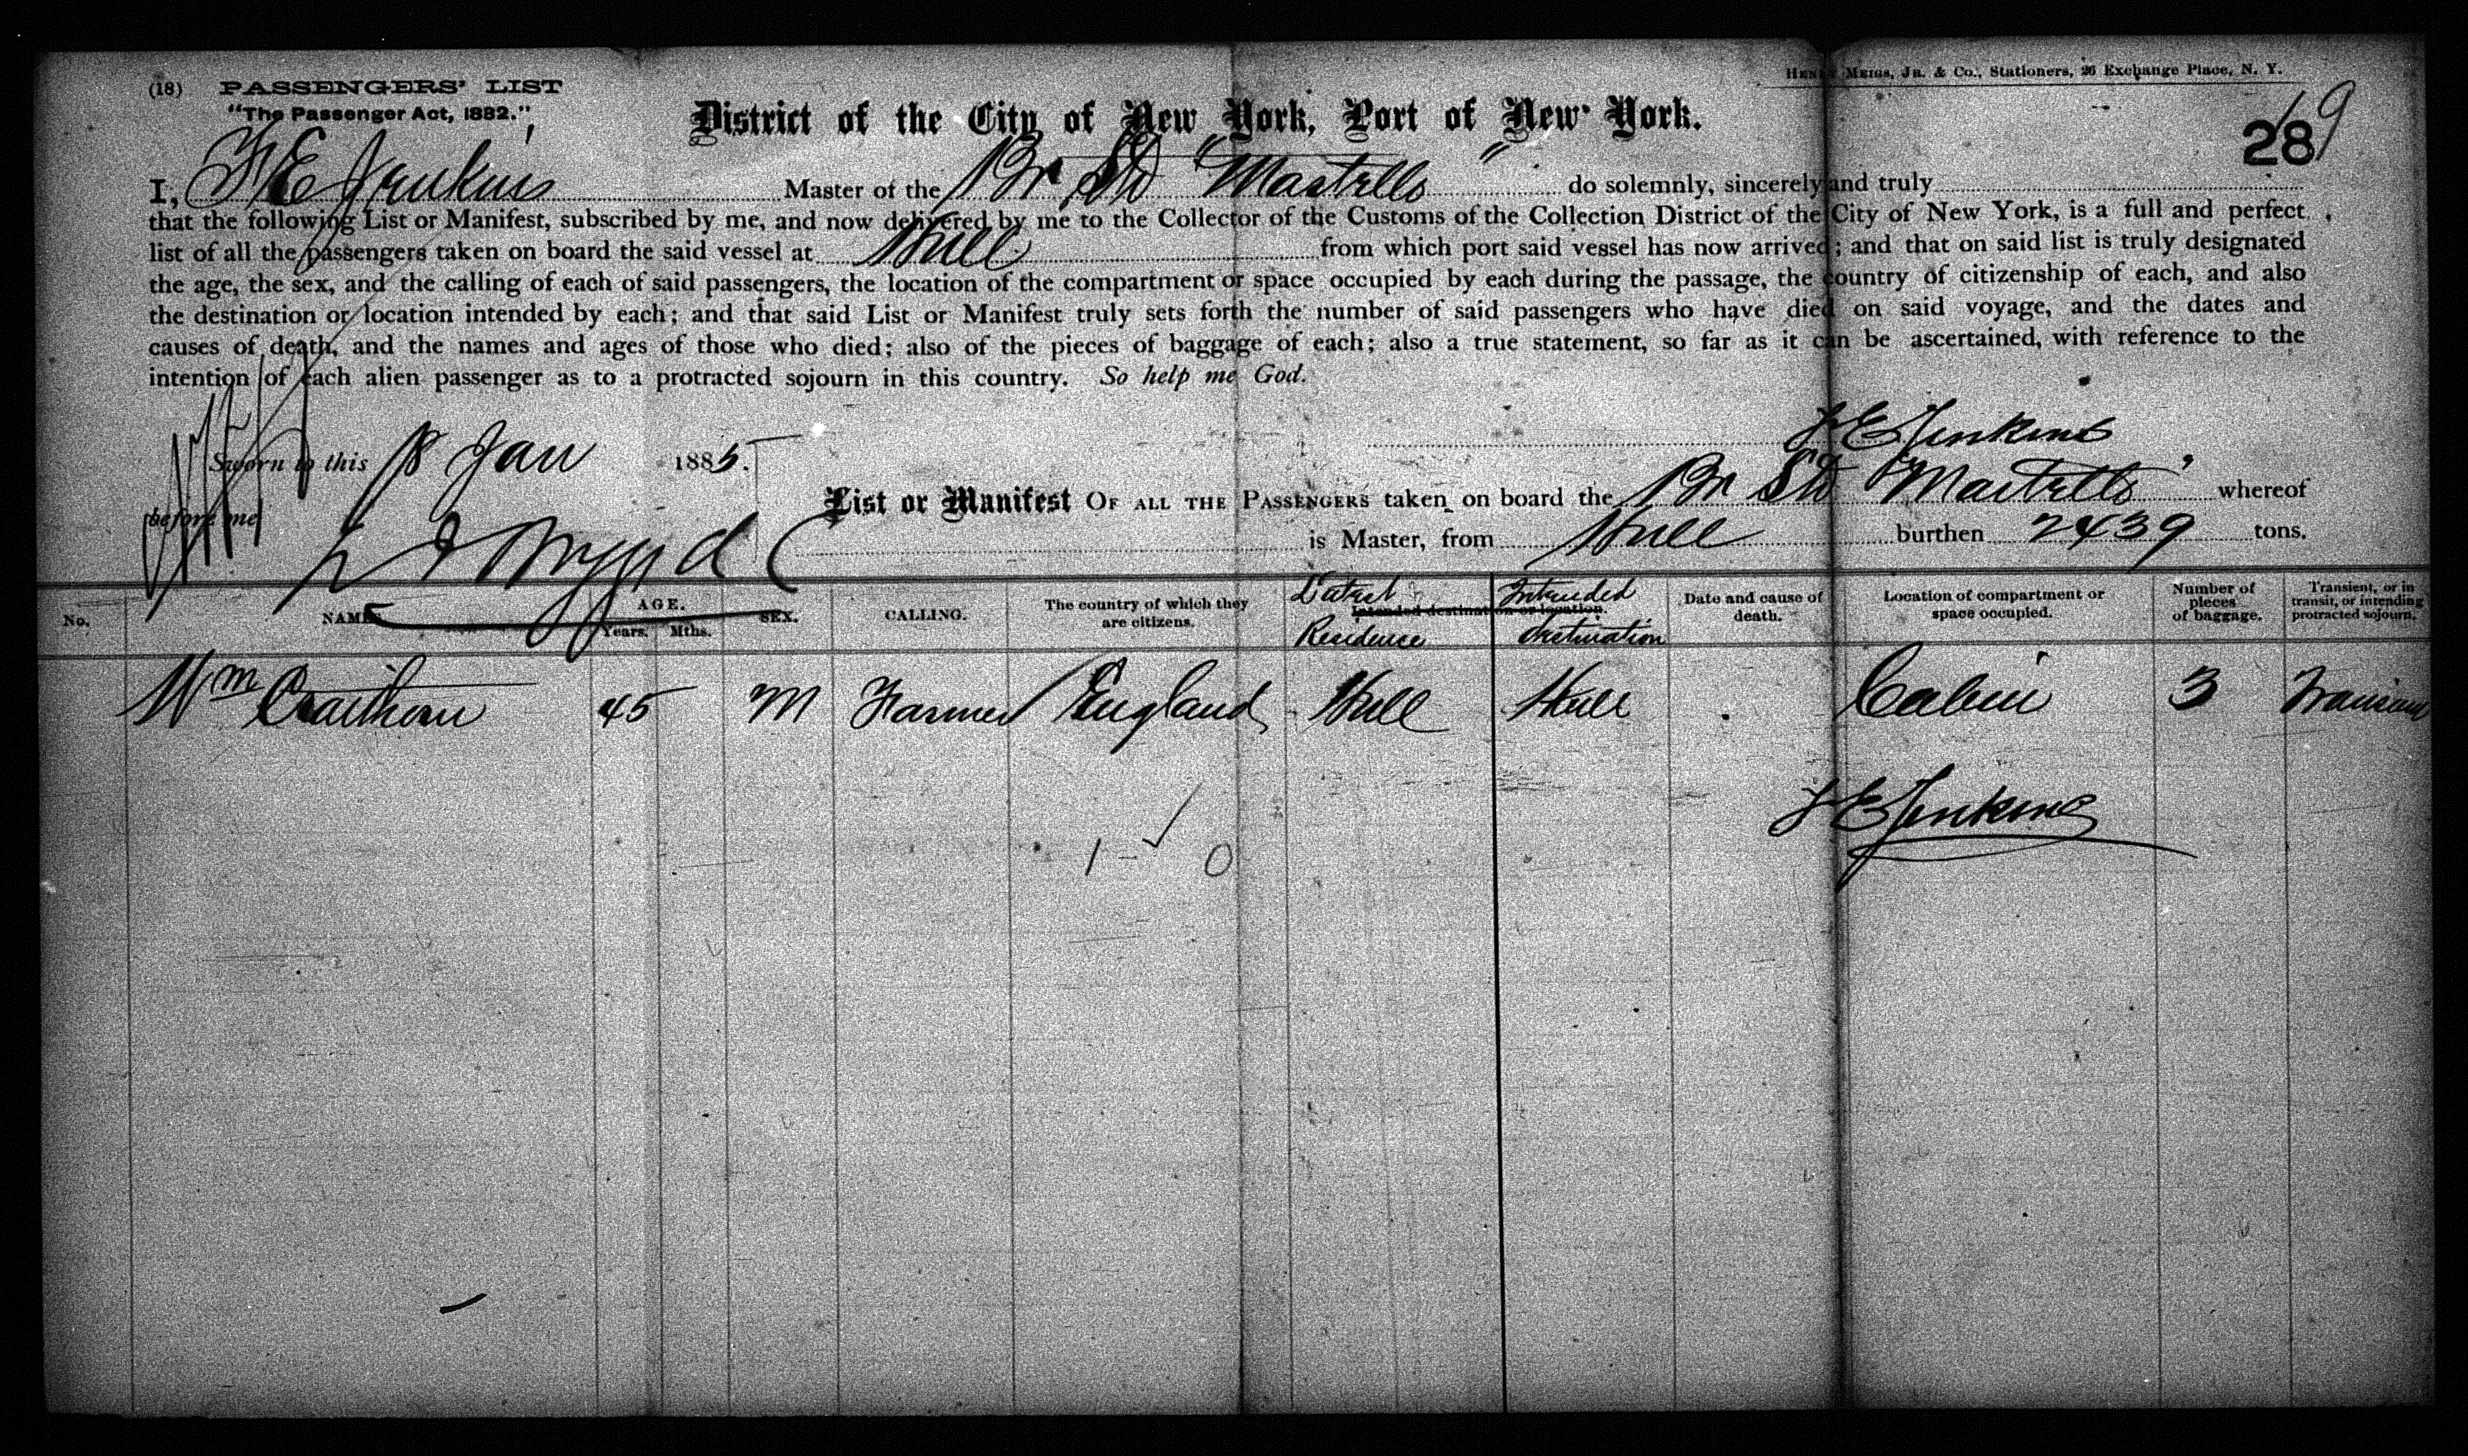 (18) PASSENGERS' LIST
"The Passenger Act, 1882."
HENRY MEIGS, JR. & CO., Stationers, 26 Exchange Place, N. Y.
District of the City of New York, Port of New York.
28
I, F E Jenkins Master of the Br Str "Martello" do solemnly, sincerely and truly
that the following List or Manifest, subscribed by me, and now delivered by me to the Collector of the Customs of the Collection District of the City of New York, is a full and perfect
list of all the passengers taken on board the said vessel at Hull from which port said vessel has now arrived; and that on said list is truly designated
the age, the sex, and the calling of each of said passengers, the location of the compartment or space occupied by each during the passage, the country of citizenship of each, and also
the destination or location intended by each; and that said List or Manifest truly sets forth the number of said passengers who have died on said voyage, and the dates and
causes of death, and the names and ages of those who died; also of the pieces of baggage of each; also a true statement, so far as it can be ascertained, with reference to the
intention of each alien passenger as to a protracted sojourn in this country. So help me God.
F E Jenkins
Sworn to this Jan 1885.
before me
List or Manifest OF ALL THE PASSENGERS taken on board the Br Str "Martello" whereof
is Master, from Hull burthen 2439 tons.
No. NAME. AGE. Years. Mths. SEX. CALLING. The country of which they are citizens. Intended destination or location. Residence Intended destination Date and cause of death. Location of compartment or space occupied. Number of pieces of baggage. Transient, or in transit, or intending protracted sojourn.
Wm 45 M Farmer England Hull Hull Cabin 3 Transient
F E Jenkins
1 - 0